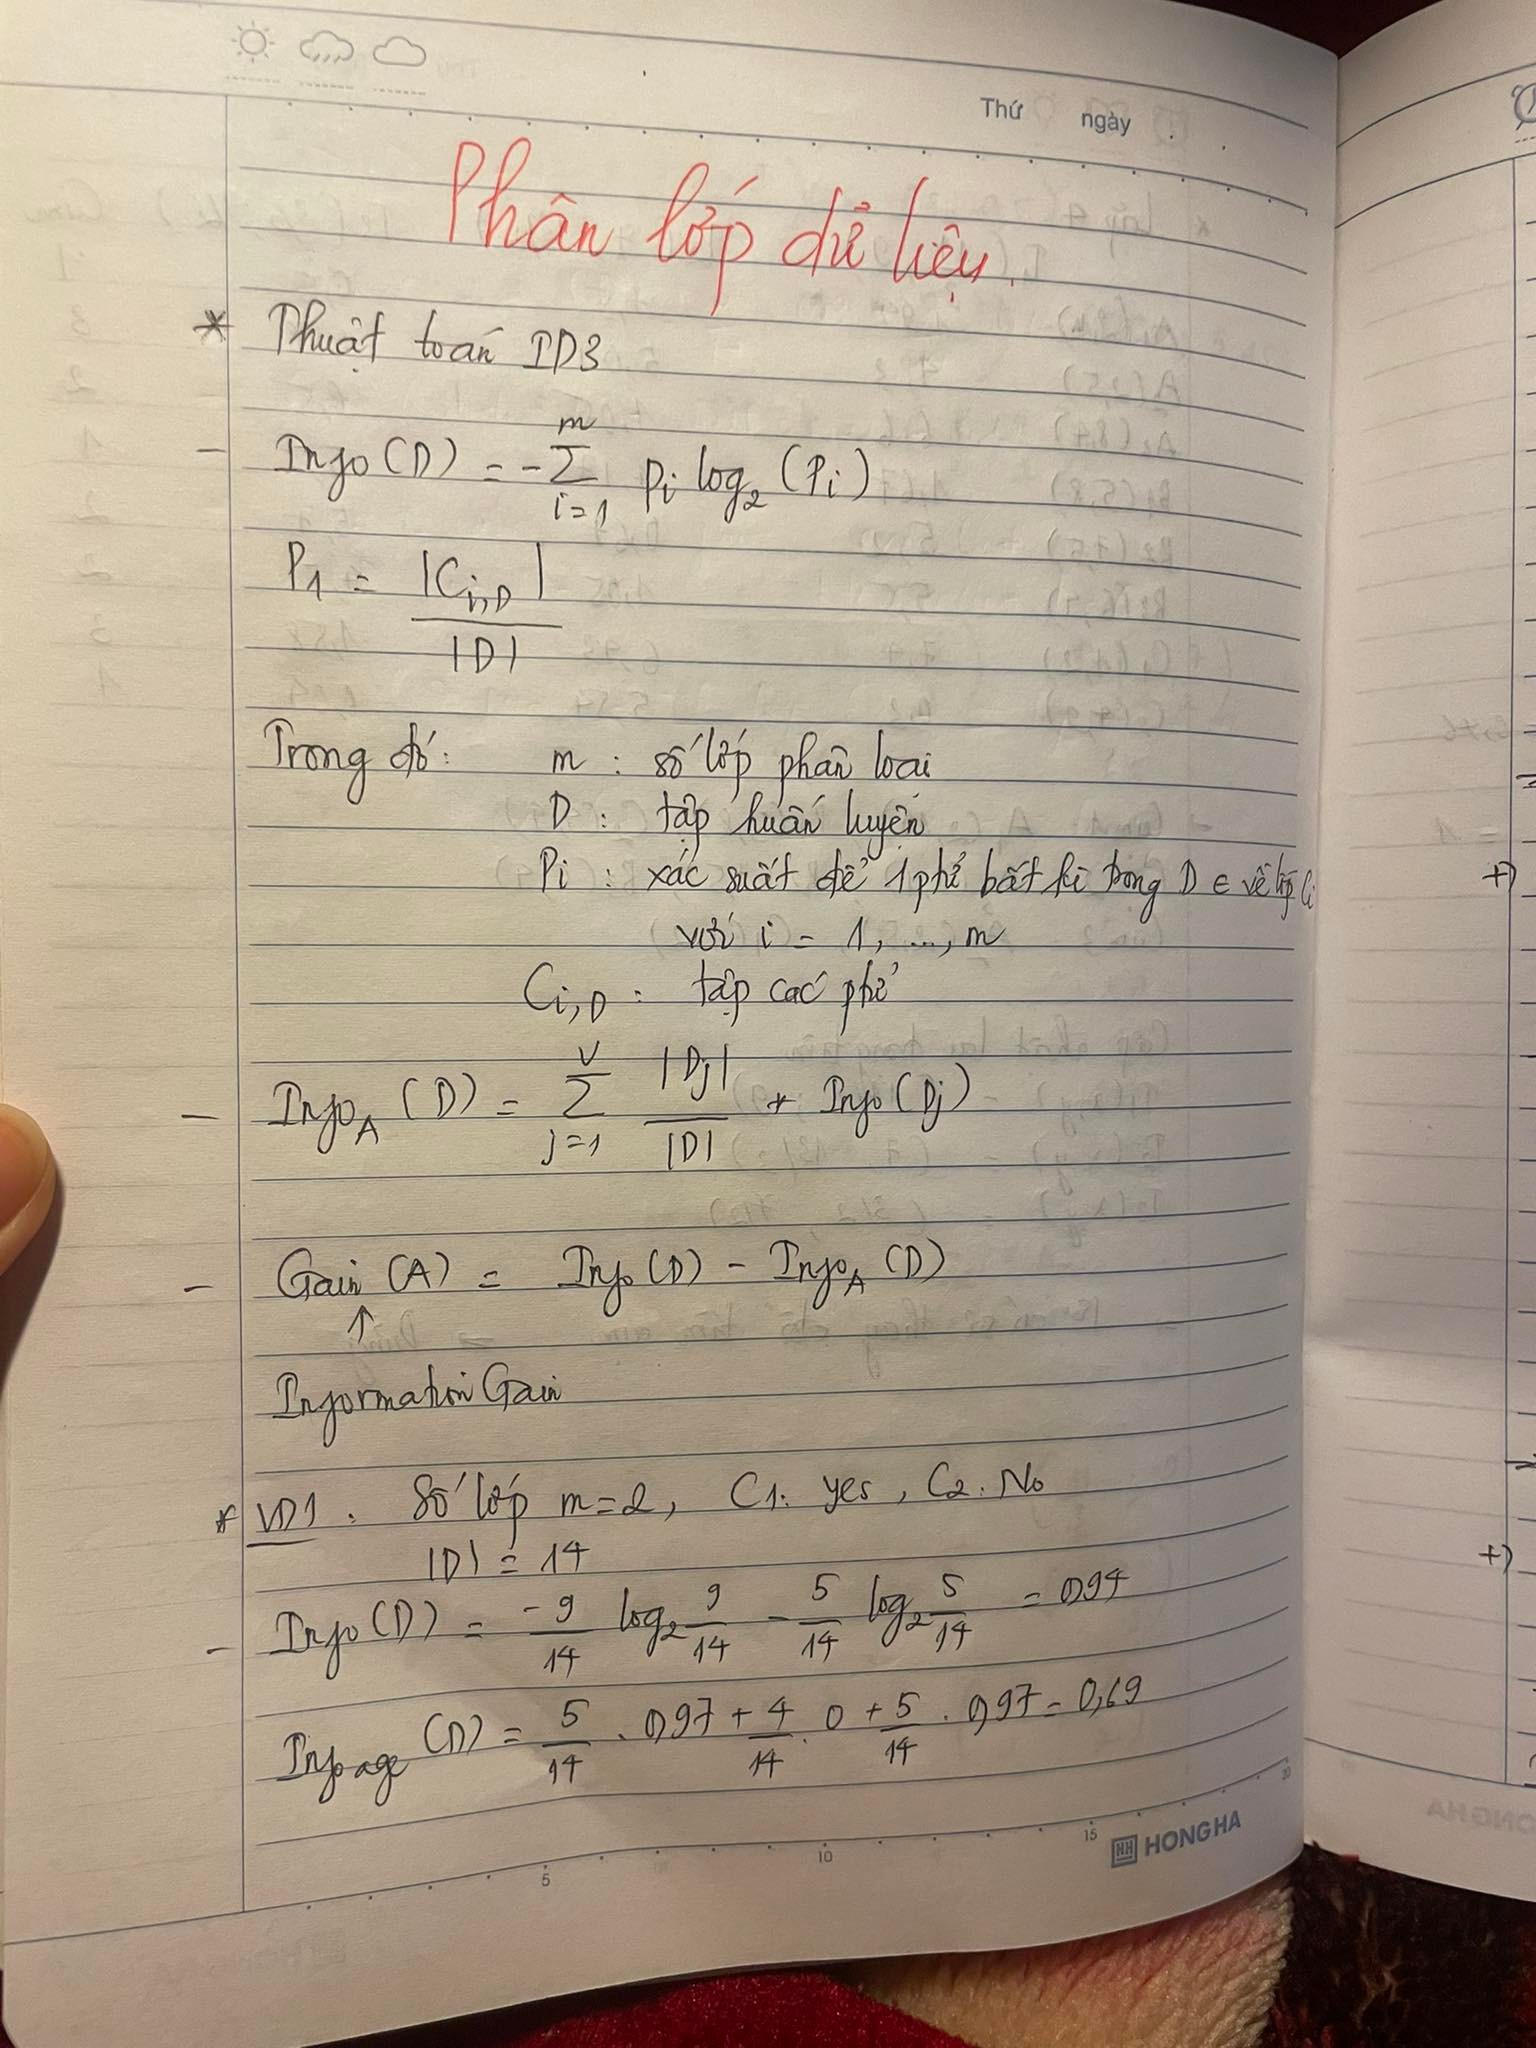 Thứ ngày
Phân lớp dữ liệu.
* Thuật toán ID3
- Info(D) = -∑_{i=1}^{m} Pi log₂(Pi)
P1 = |Ci,D| / |D|
Trong đó: m : số lớp phân loại
D : tập huấn luyện
Pi : xác suất để 1 phử bất kì trong D ∈ về lớp Ci
với i = 1, ..., m
Ci,D : tập các phử
- Info_A (D) = ∑_{j=1}^{v} |Dj| / |D| * Info(Dj)
- Gain (A) = Info(D) - Info_A (D)
↑
Information Gain
* VD1 : Số lớp m=2, C1: yes, C2: No
|D| = 14
- Info(D) = -9/14 log₂ 9/14 - 5/14 log₂ 5/14 = 0,94
Info age (D) = 5/14 . 0,97 + 4/14 . 0 + 5/14 . 0,97 = 0,69
5 10 15 20
HH HONG HA
+)
+)